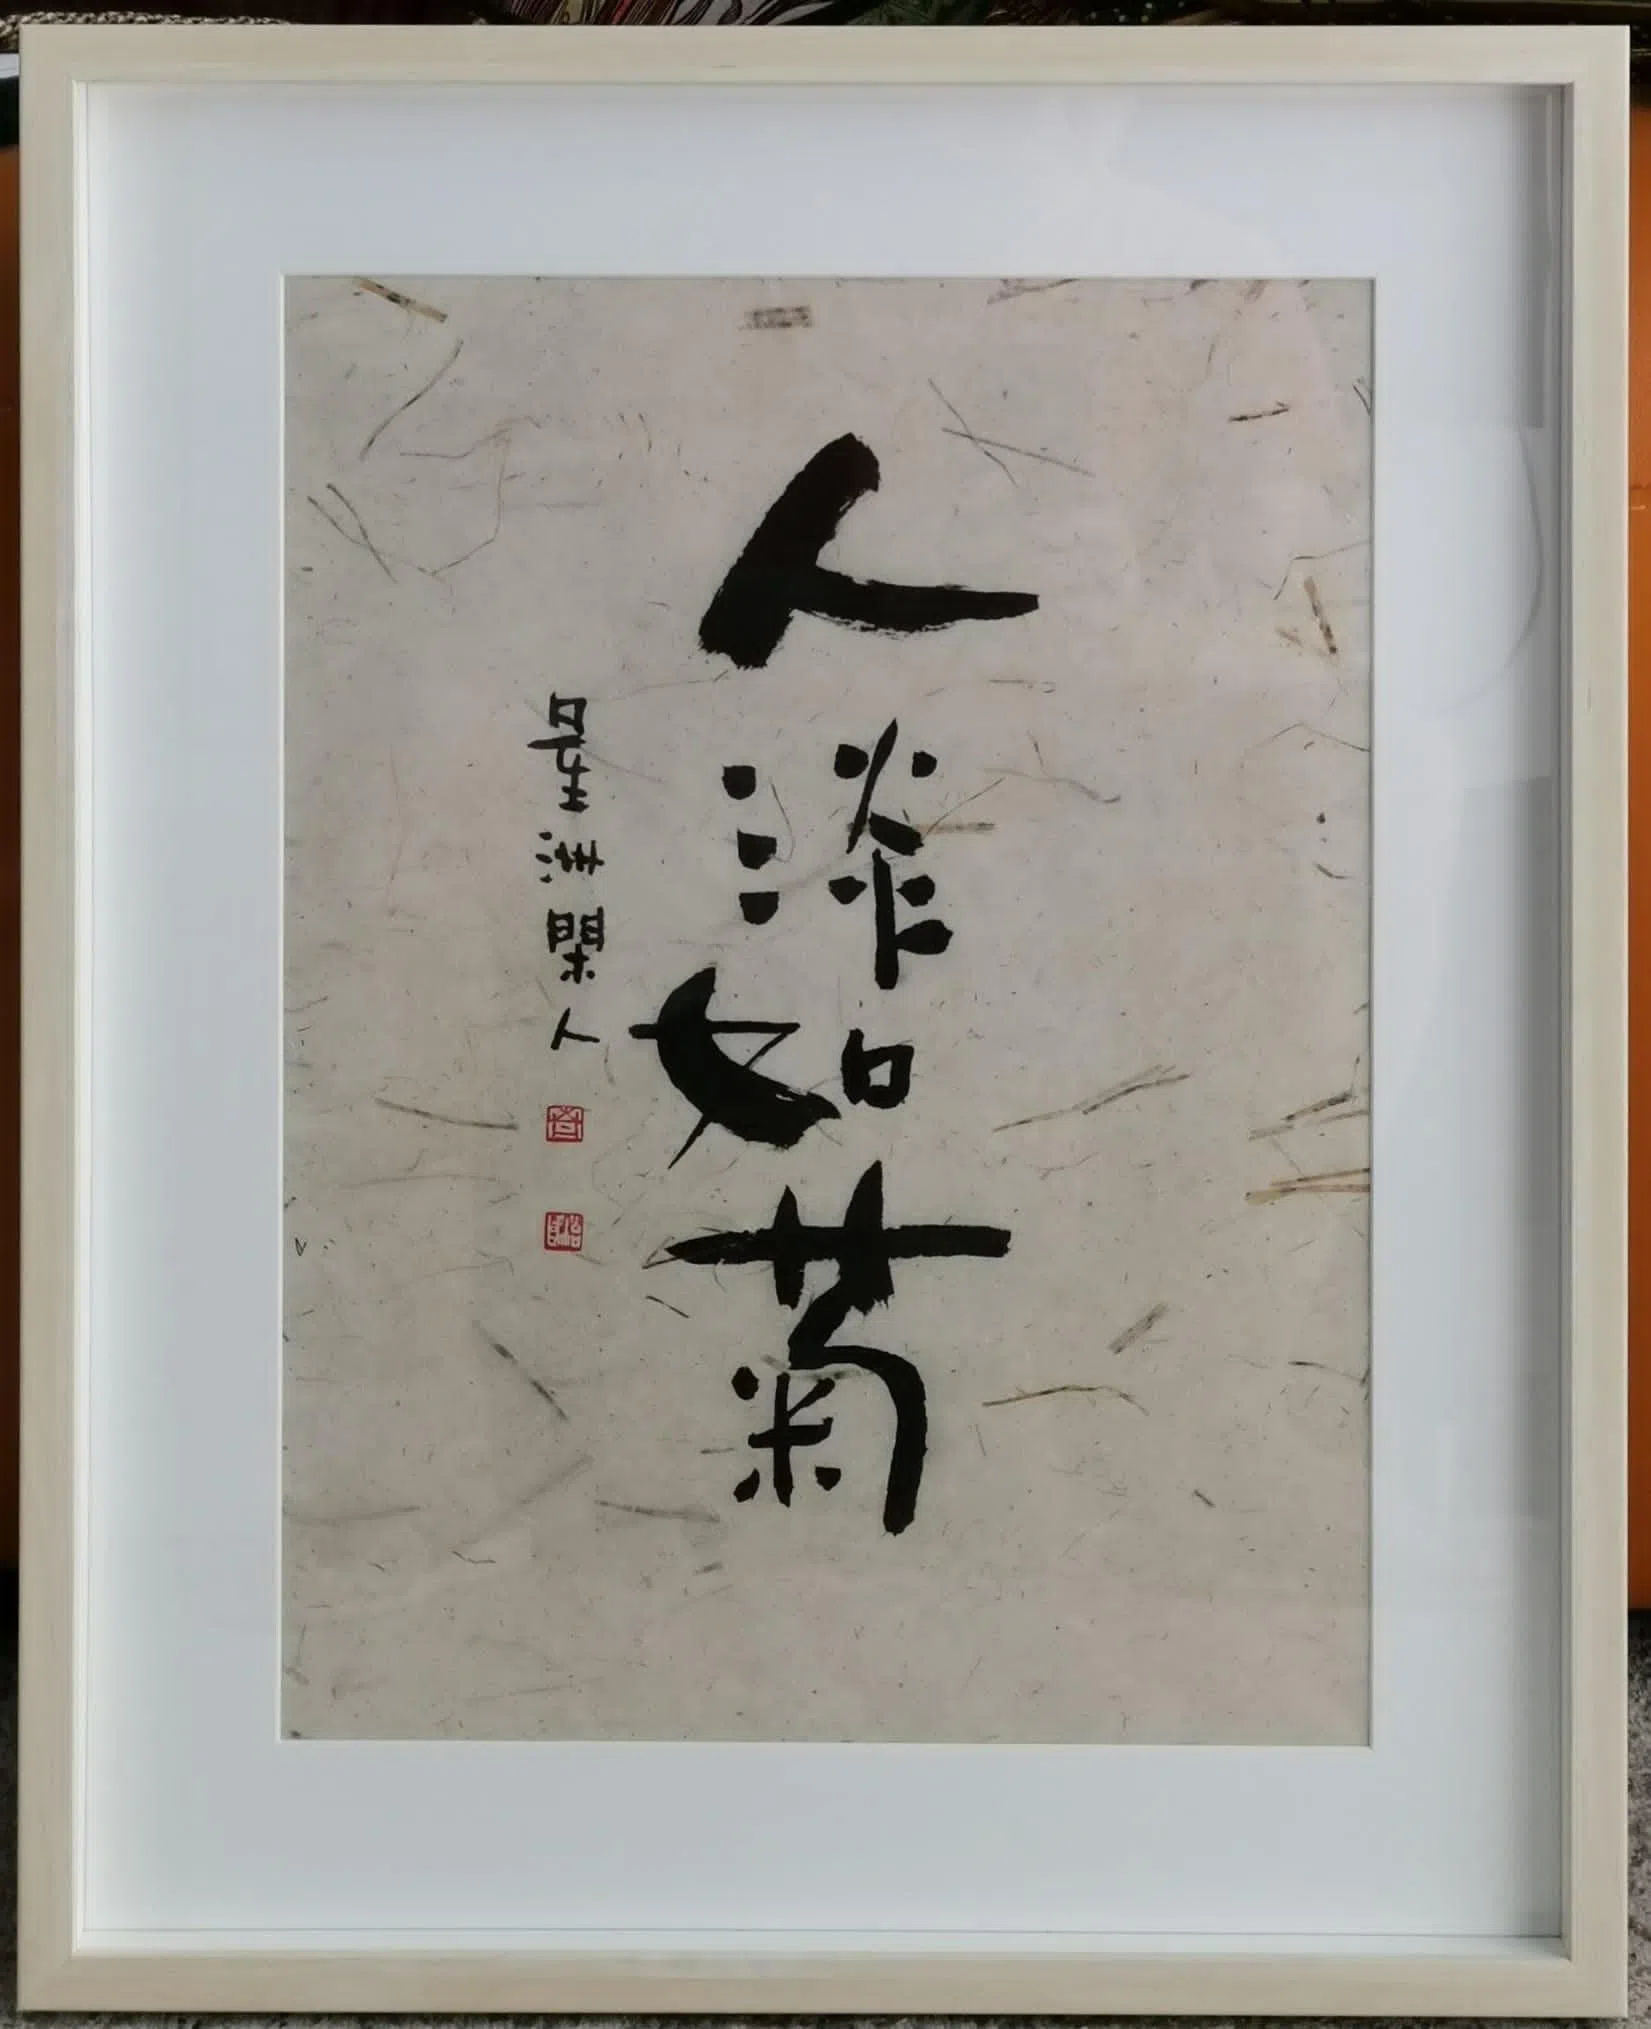 人淡如菊
星洲閑人